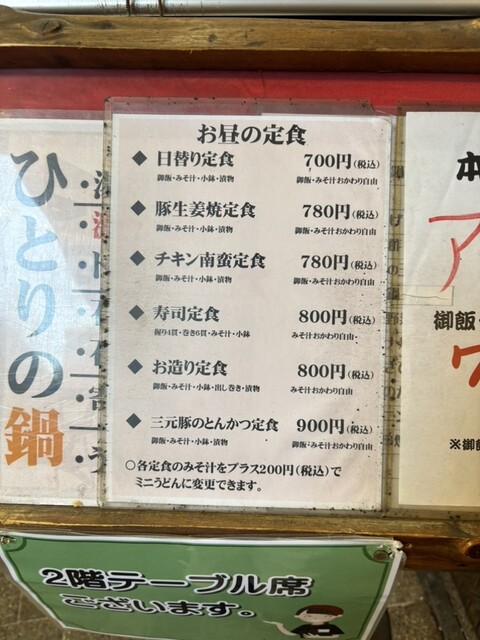 お昼の定食
◆ 日替り定食 700円(税込)
御飯・みそ汁・小鉢・漬物 御飯・みそ汁おかわり自由
◆ 豚生姜焼定食 780円(税込)
御飯・みそ汁・小鉢・漬物 御飯・みそ汁おかわり自由
◆ チキン南蛮定食 780円(税込)
御飯・みそ汁・小鉢・漬物 御飯・みそ汁おかわり自由
◆ 寿司定食 800円(税込)
握り4貫・巻き6貫・みそ汁・小鉢 みそ汁おかわり自由
◆ お造り定食 800円(税込)
御飯・みそ汁・小鉢・出し巻き・漬物 みそ汁おかわり自由
◆ 三元豚のとんかつ定食 900円(税込)
御飯・みそ汁・小鉢・漬物 御飯・みそ汁おかわり自由
○各定食のみそ汁をプラス200円(税込)で
ミニうどんに変更できます。
ひとりの鍋
本
ア
御飯
※御飯
2階テーブル席
ございます。